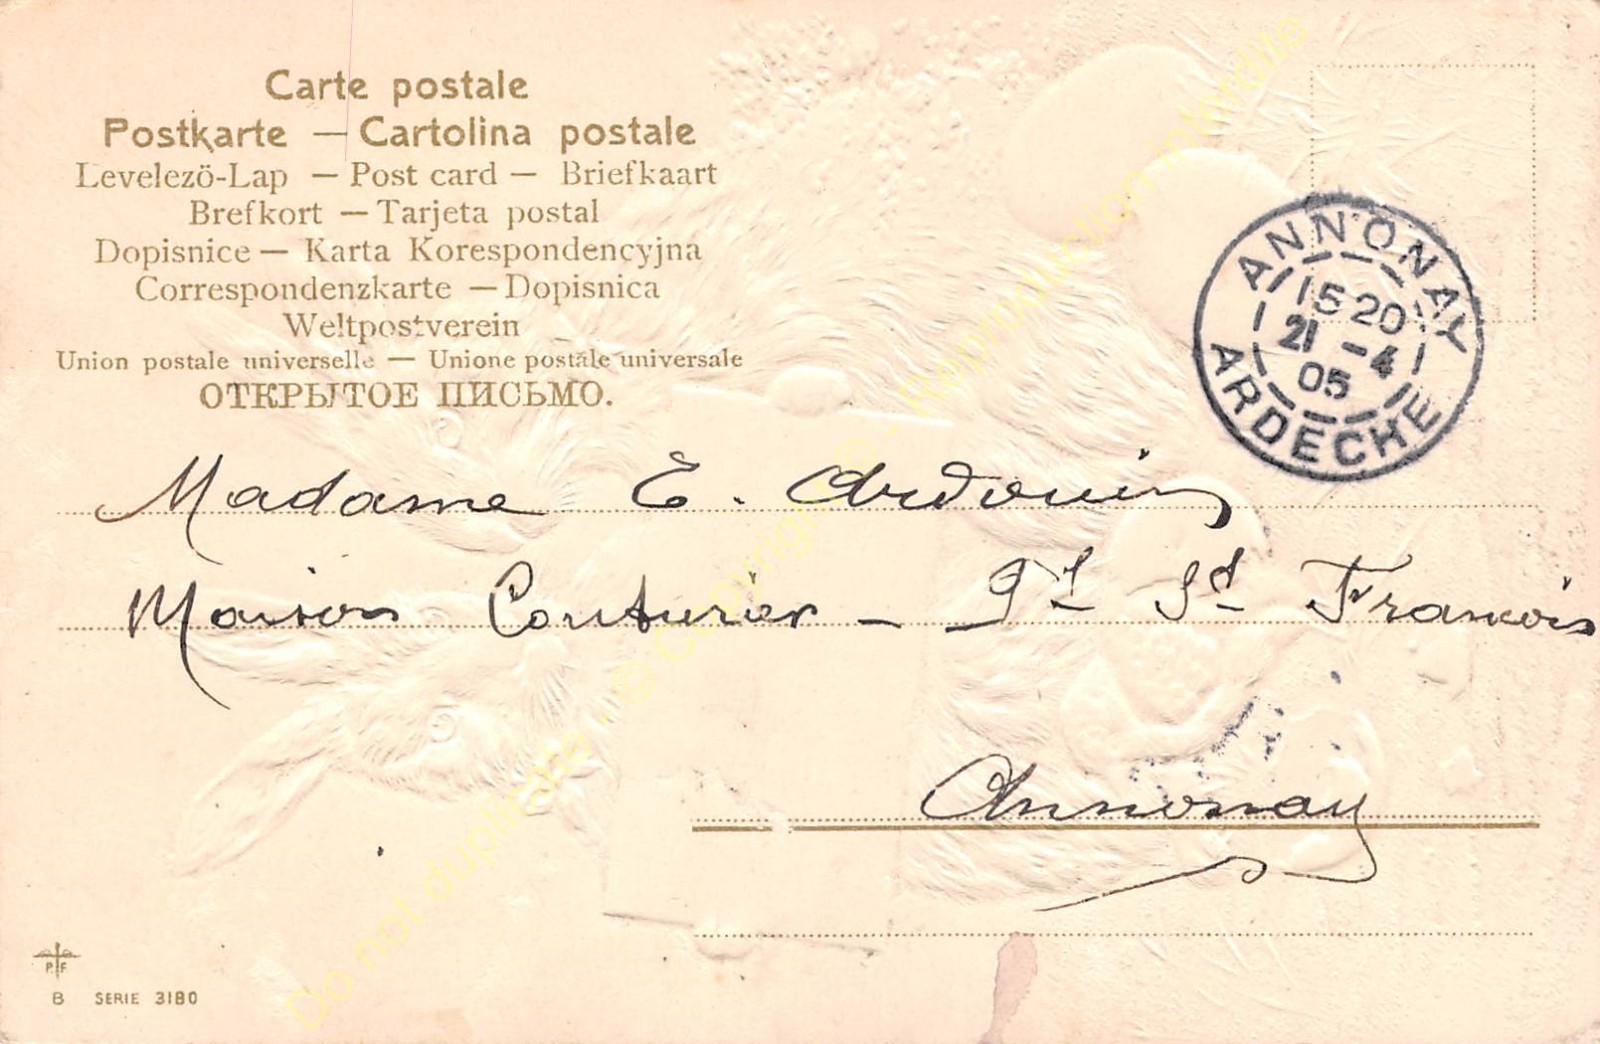 Carte postale
Postkarte — Cartolina postale
Levelezö-Lap — Post card — Briefkaart
Brefkort — Tarjeta postal
Dopisnice — Karta Korespondencyjna
Correspondenzkarte — Dopisnica
Weltpostverein
Union postale universelle — Unione postale universale
ОТКРЫТОЕ ПИСЬМО.
ANNONAY
15 20
21 - 4
05
ARDECHE
Madame E. Ardouin
Maison Couturier - Pl St François
Annonay
P. F.
B SERIE 3180
Do not duplicate - © Copyright © - Reproduction interdite